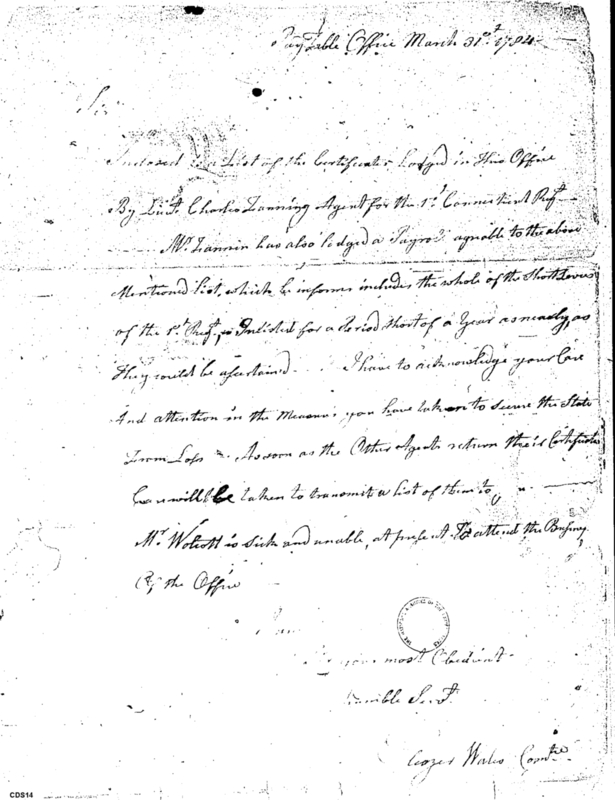 Pay Table Office March 31st 1784
Sir
Inclosed is a List of the Certificates Lodged in this Office
By Lieut. Charles Fanning Agent for the 1st Connecticut Regt
Mr. Fannin has also lodged a Payrol agreable to the above
Mentioned List, which he informs includes the whole of the Short Levies
of the 1st Regt, Inlisted for a Period Short of a Year as nearly, as
they could be ascertained. I have to acknowledge your Care
And attention in the Measures you have taken to secure the State
From Loss - As soon as the Other Agents return their Certificates
Care will be taken to transmit a List of them to you.
Mr. Wolcott is Sick and unable, at present To attend the Business
Of the Office
I am
your most Obedient
Humble Servt.
Wales Comtee
CDS14